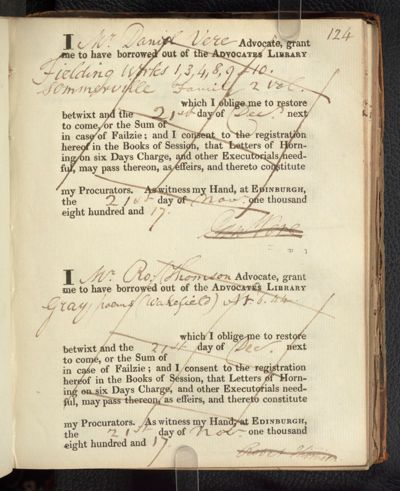 124
I Mr. Daniel Vere Advocate, grant
me to have borrowed out of the ADVOCATES LIBRARY
Fielding Works 1, 3, 4, 8, 9 & 10.
Sommerville Family 2 Vol.
which I oblige me to restore
betwixt and the 21st day of Dec. next
to come, or the Sum of
in case of Failzie; and I consent to the registration
hereof in the Books of Session, that Letters of Horn-
ing on six Days Charge, and other Executorials need-
ful, may pass thereon, as effeirs, and thereto constitute
my Procurators. As witness my Hand, at EDINBURGH,
the 21st day of Nov. one thousand
eight hundred and 17.
Dan Vere
I Mr. Ro. Thomson Advocate, grant
me to have borrowed out of the ADVOCATES LIBRARY
Gray, poems (Wakefield)
which I oblige me to restore
betwixt and the 21st day of Dec. next
to come, or the Sum of
in case of Failzie; and I consent to the registration
hereof in the Books of Session, that Letters of Horn-
ing on six Days Charge, and other Executorials need-
ful, may pass thereon, as effeirs, and thereto constitute
my Procurators. As witness my Hand, at EDINBURGH,
the 21st day of Nov. one thousand
eight hundred and 17.
Robert Thomson